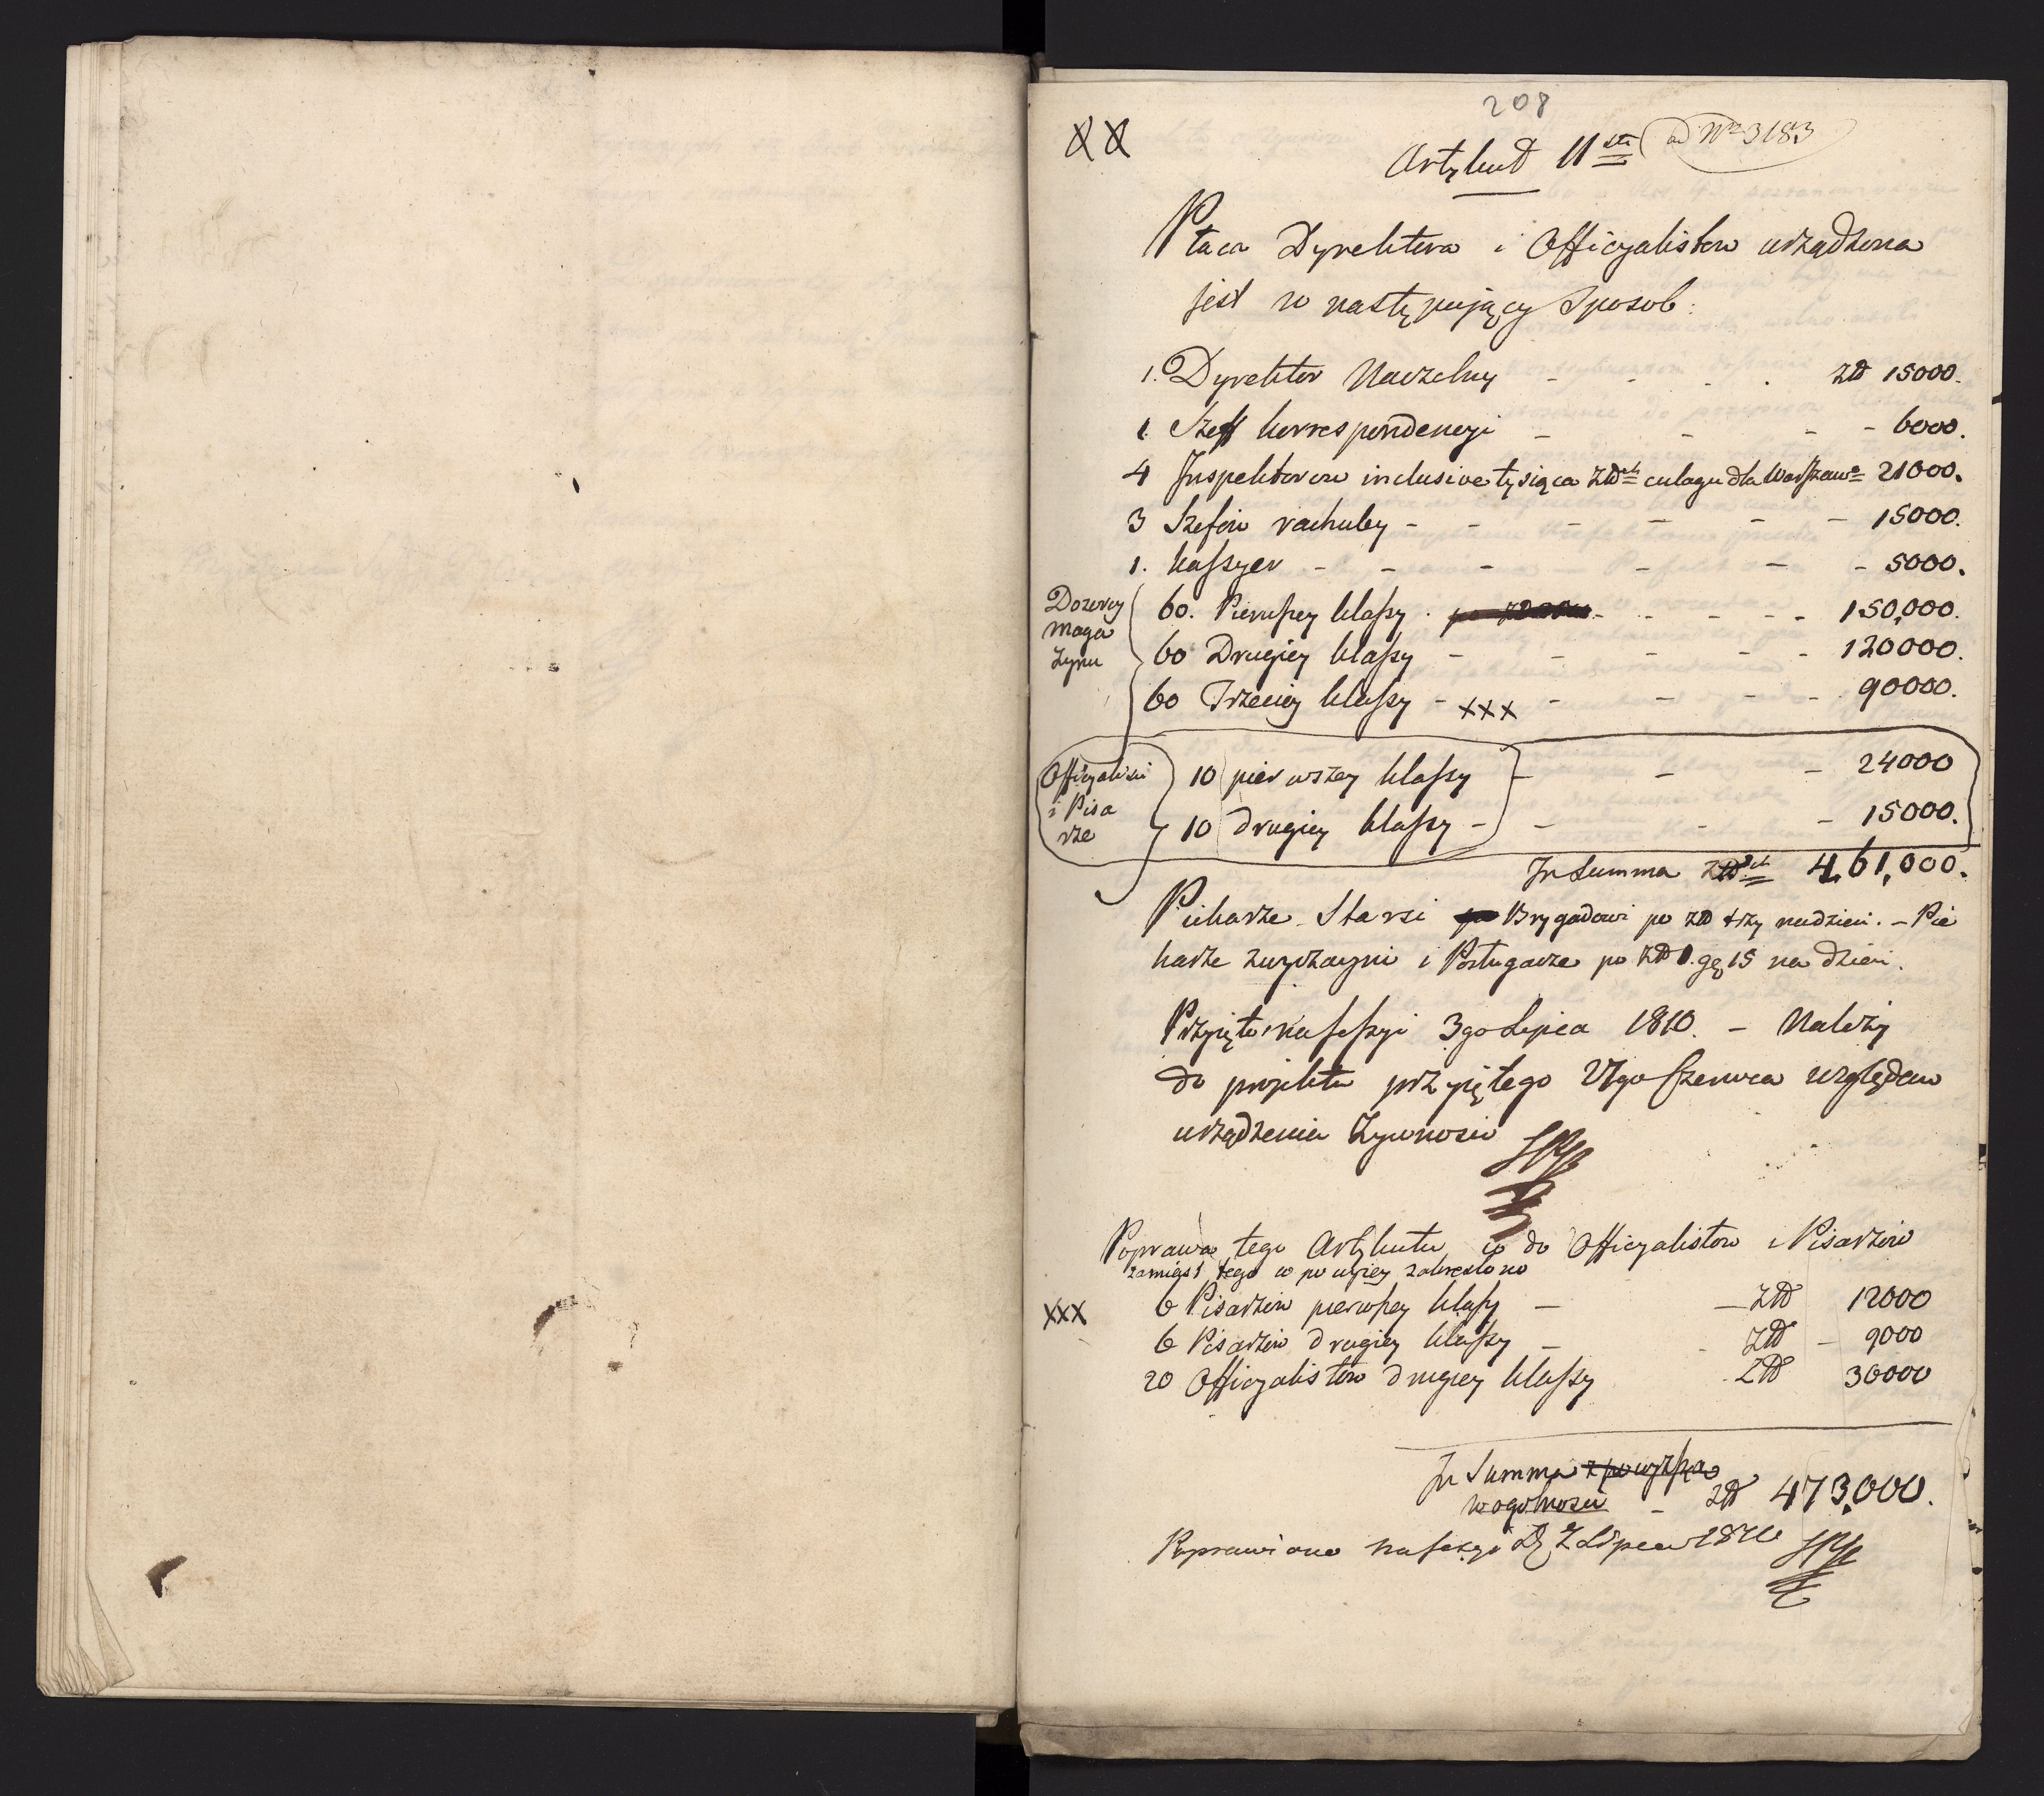 208
XX
Artykuł 11sty
ad Nro 3183
Płaca Dyrektora i Officyalistow urządzona
jest w następujący Sposob:
1. Dyrektor Naczelny - - - . zł 15000.
1. Szeff korrespondencyi - - - - 6000.
4 Inspektorow inclusive tysiąca złch culagu dla Warszaws 21000.
3 Szefów rachuby - - - - - - 15000.
1. Kassyer - - - - - - 5000.
Dozorcy
maga
zynu
60. Pierwszey klassy - - - - - 150,000.
60 Drugiey klassy - - - - - 120000.
60 Trzeciey klassy - xxx - - - - 90000.
Officyalisci
i Pisa
rze
10 pierwszey klassy - - - 24000
10 drugiey klassy - - - - 15000.
In Summa złch 461,000.
Piekarze Starsi po Brygadowi po zł trzy na dzień. - Pie
karze zwyczayni i Posługacze po zł 1. gr 15 na dzień.
Przyięto na sessyi 3go Lipca 1810. - Należy
do projektu przyiętego 27go Czerwca względem
urządzenia Zywności
Poprawa tego Artykułu co do Officyalistow i Pisarzów
zamiast tego co po wyżey zakreslono
xxx 6 Pisarzów pierwszey klassy - - zł 12000
6 Pisarzów drugiey klassy - - zł - 9000
20 Officyalistów drugiey klassy - zł 30000
In Summa z powyższą
w ogolności - zł 473,000.
Poprawiono na sessyi D. 7 Lipca 1810